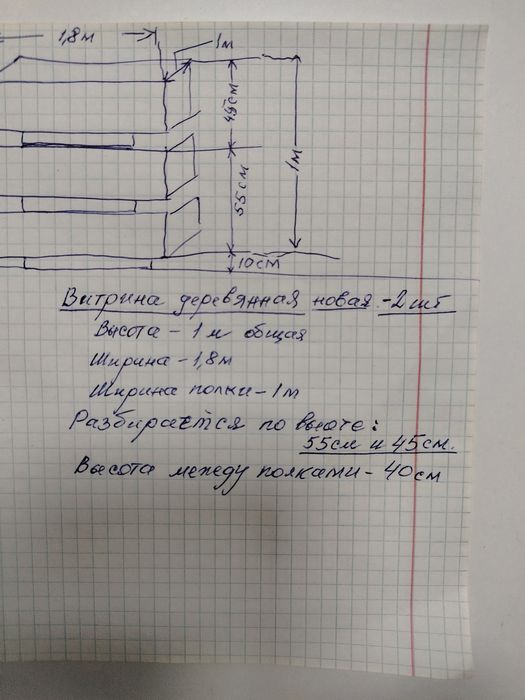 1,8м
1м
45см
1м
55см
10см
Витрина деревянная новая - 2 шт
Высота - 1 м общая
Ширина - 1,8м
Ширина полки - 1м
Разбирается по высоте:
55см и 45см.
Высота между полками - 40см